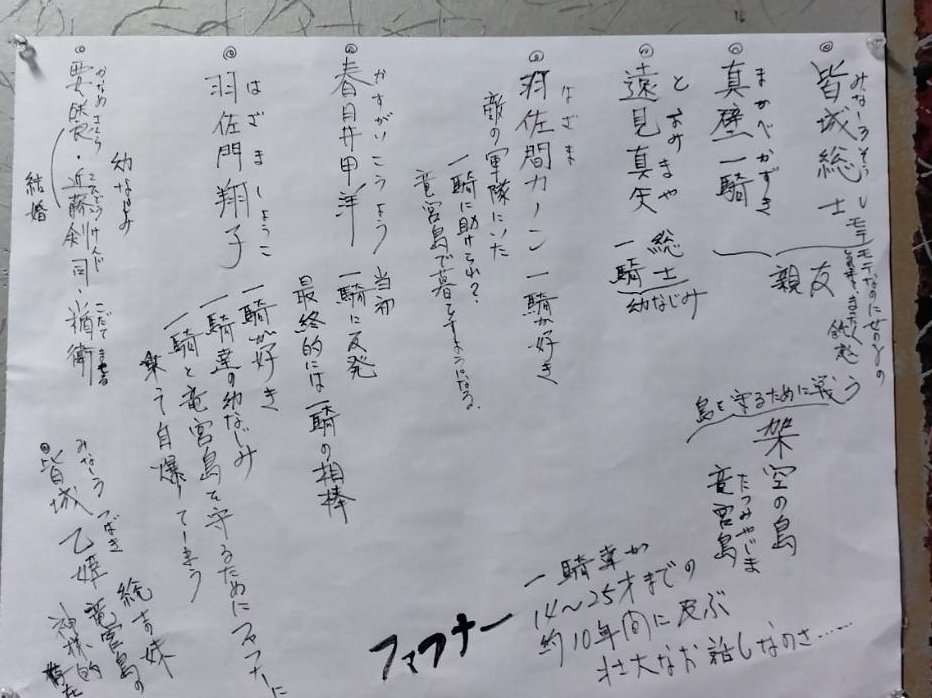 みなしろそうし
皆城総士
親友
まかべかずき
真壁一騎
島を守るために戦う
架空の島
たつみやじま
竜宮島
とおみまや
遠見真矢
総士
一騎
幼なじみ
はざま
羽佐間カノン 一騎が好き
敵の軍隊にいた
一騎に助けられ?
竜宮島で暮らすようになる。
かすがいこうよう
春日井甲洋 当初 一騎に反発
最終的には一騎の相棒
はざましょうこ
羽佐門翔子 一騎が好き
一騎達の幼なじみ
一騎と竜宮島を守るためにファフナーに
乗って自爆してしまう
かなめさくら こんどうけんじ
要咲良・近藤剣司・楯衛
幼なじみ
結婚
みなしろ つばき
皆城 乙姫
総士妹
竜宮島の
神様的
存在
ファフナー
一騎達が
14〜25才までの
約10年間に及ぶ
壮大なお話しなのさ……